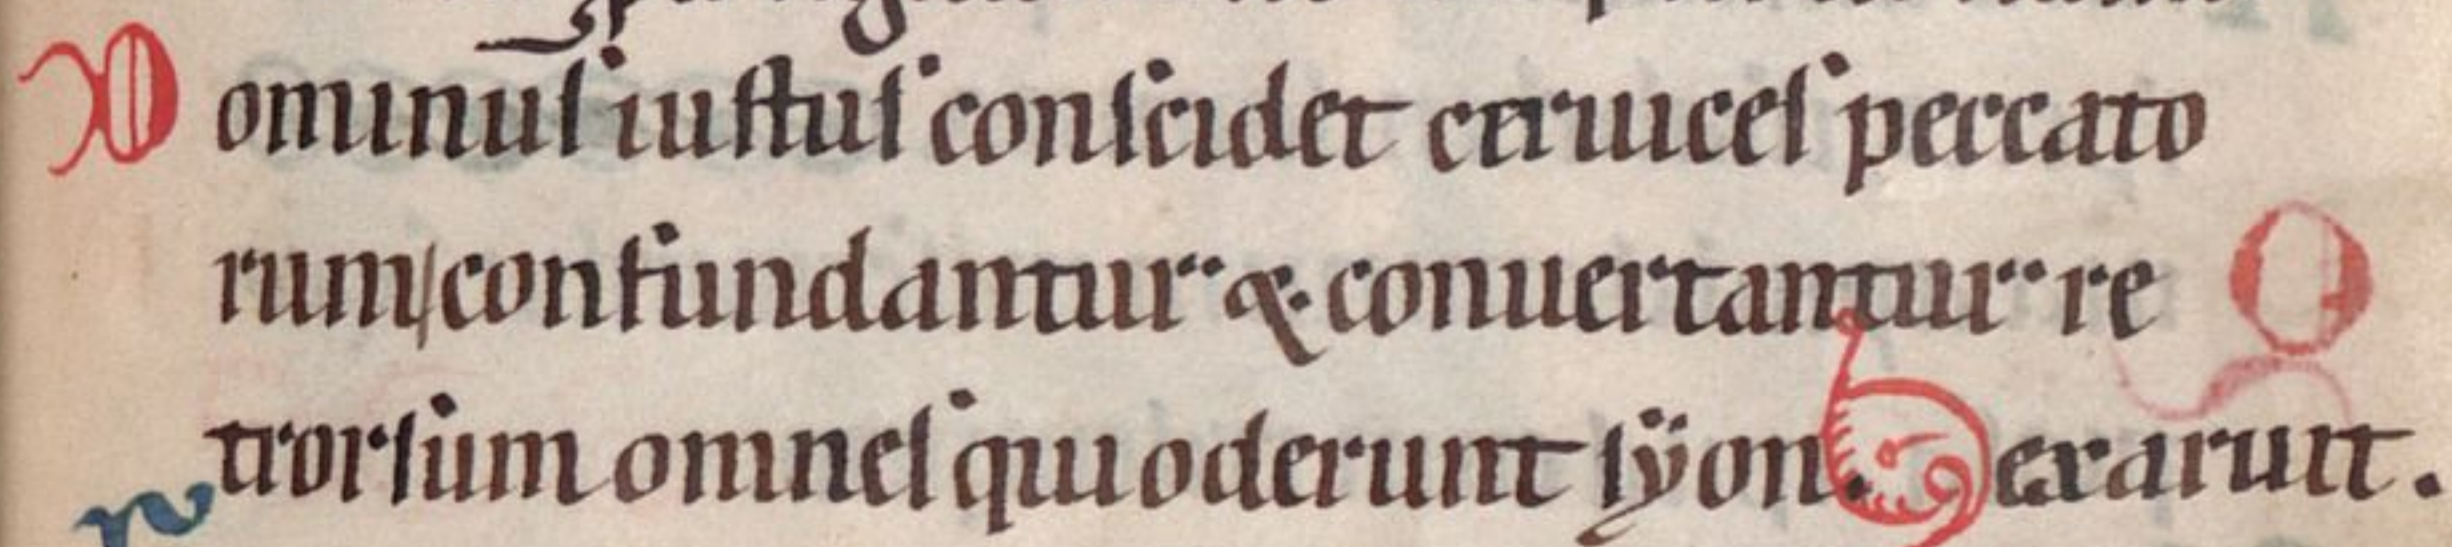 Dominus iustus conscidet ceruices peccato
rum confundantur & conuertantur re
trorsum omnes qui oderunt syon.